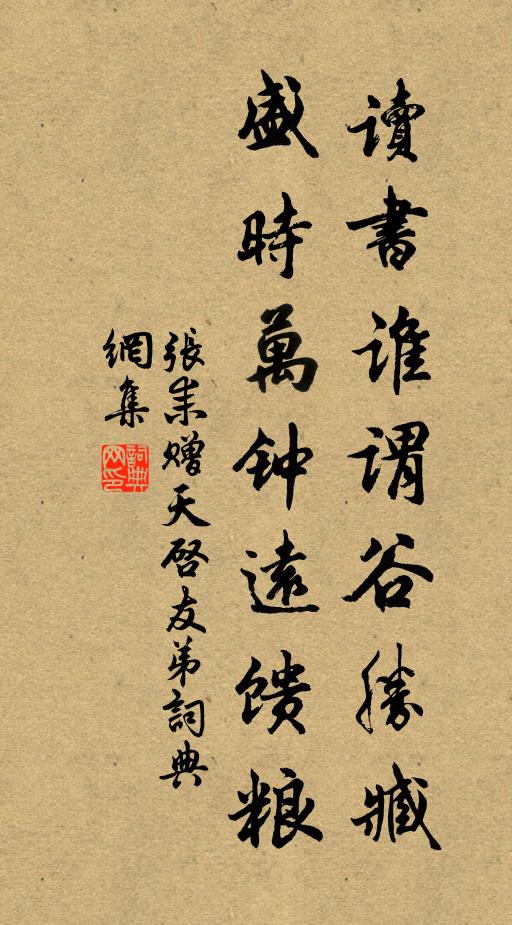 讀書誰謂谷勝臧
盛時萬钟遠馈粮
張耒赠天啓友弟詞典
網集
詞典
网印